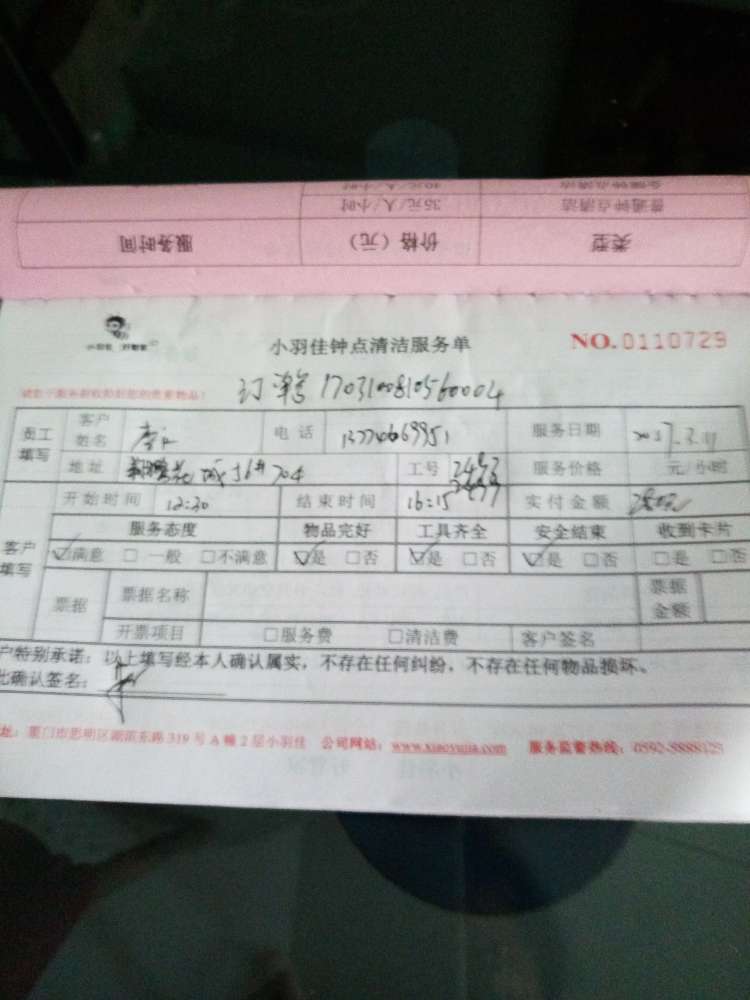 类型 价格（元） 服务时间
普通钟点清洁 35元/人/小时
小羽佳钟点清洁服务单
NO.0110729
订单号 1703100810560004
员工填写 客户姓名 电话 服务日期
地址 704 工号 2493 服务价格 元/小时
开始时间 12:30 结束时间 16:15 实付金额
客户填写 服务态度 物品完好 工具齐全 安全结束 收到卡片
☑满意 □一般 □不满意 ☑是 □否 ☑是 □否 ☑是 □否 □是 □否
票据 票据名称 票据金额
开票项目 □服务费 □清洁费 客户签名
户特别承诺：以上填写经本人确认属实，不存在任何纠纷，不存在任何物品损坏。
此确认签名：
址：厦门市思明区湖滨东路319号A幢2层小羽佳 公司网站：www.xiaoyujia.com 服务监督热线：0592-5888125